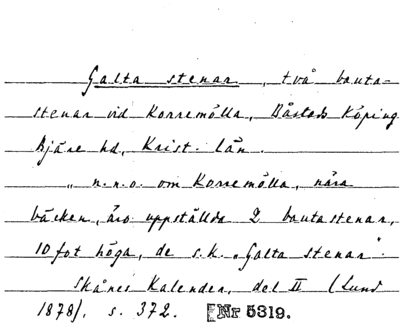 Galta stenar, två bauta-
stenar vid Korremölla, Båstads Köping
Bjäre hd, Krist. län.
„n.n.o. om Korremölla, nära
bäcken, äro uppställda 2 bautastenar,
10 fot höga, de s.k. „Galta stenar".
Skånes Kalender, del II (Lund
1878), s. 372. [Nr 5319.